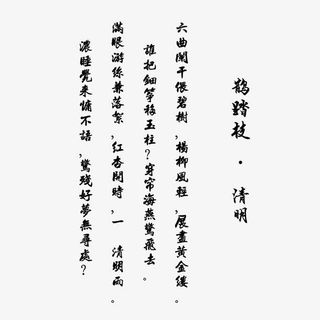 鵲踏枝 · 清明
六曲闌干偎碧樹,楊柳風輕,展盡黃金縷。
誰把鈿箏移玉柱?穿帘海燕驚飛去。
滿眼游絲兼落絮,紅杏開時,一 清明雨。
濃睡覺來慵不語,驚殘好夢無尋處?